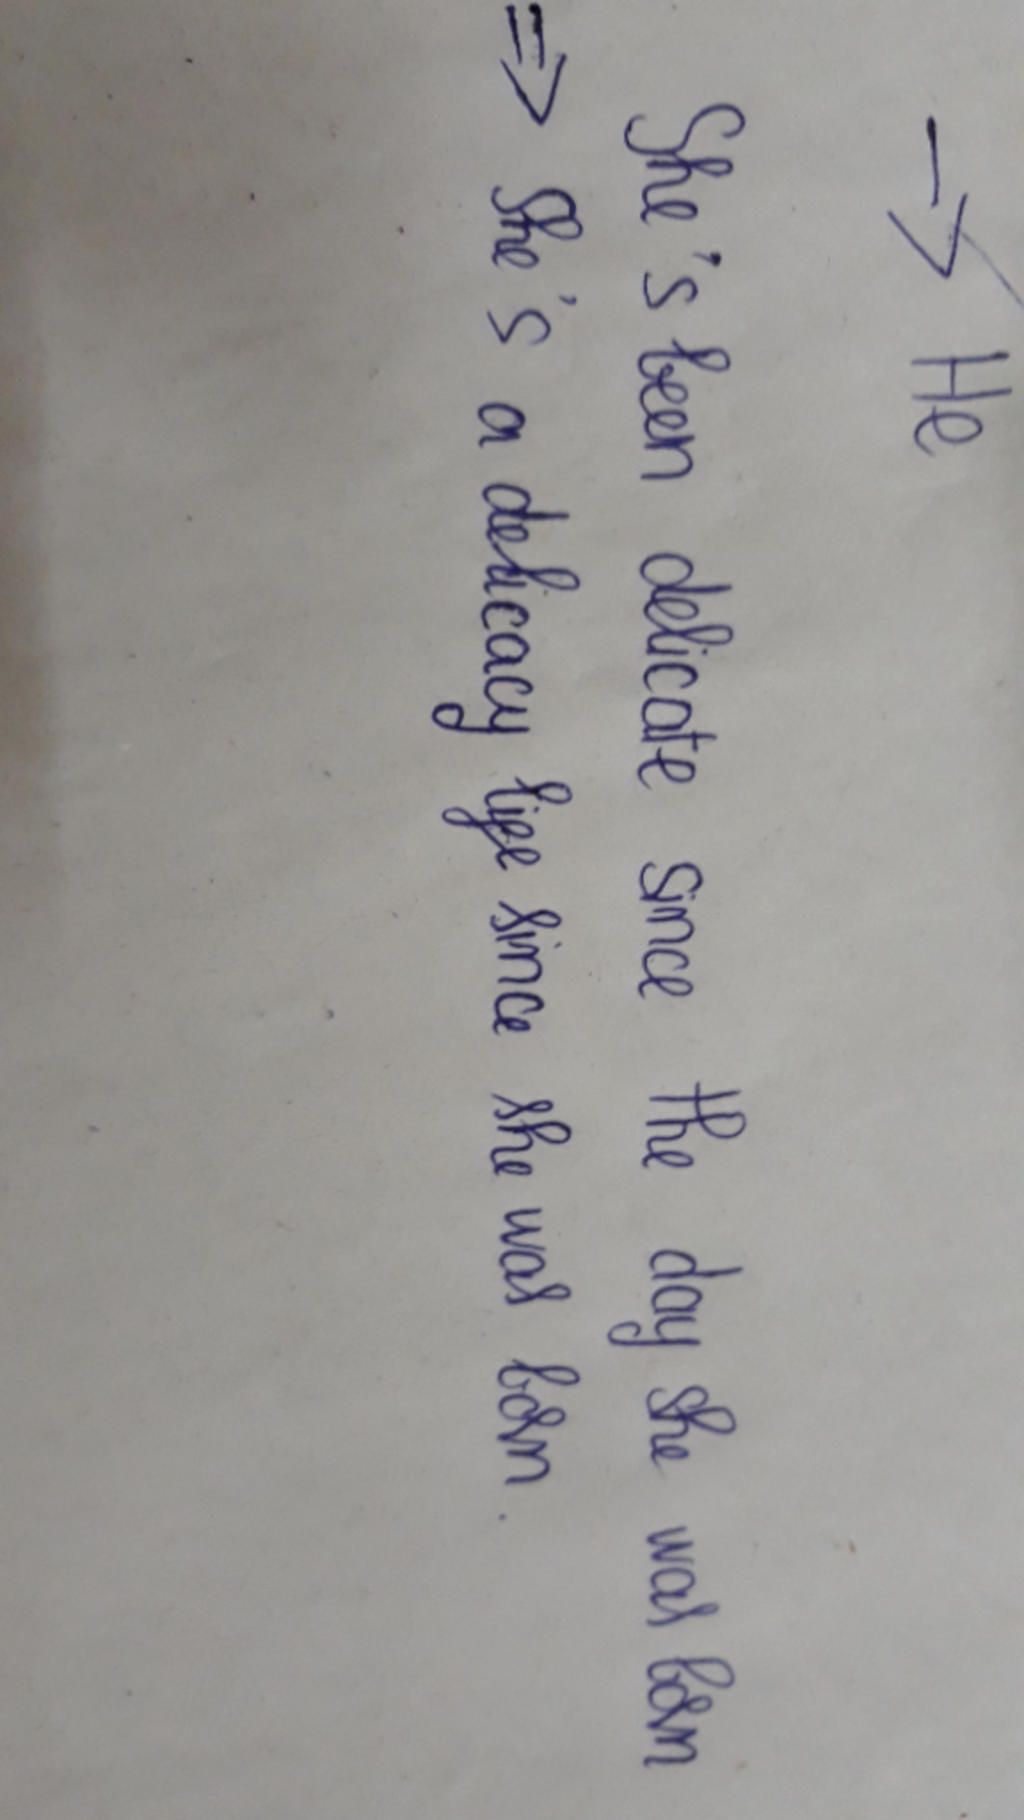 → He
She's been delicate since the day she was born
⇒ She's a delicacy life since she was born.